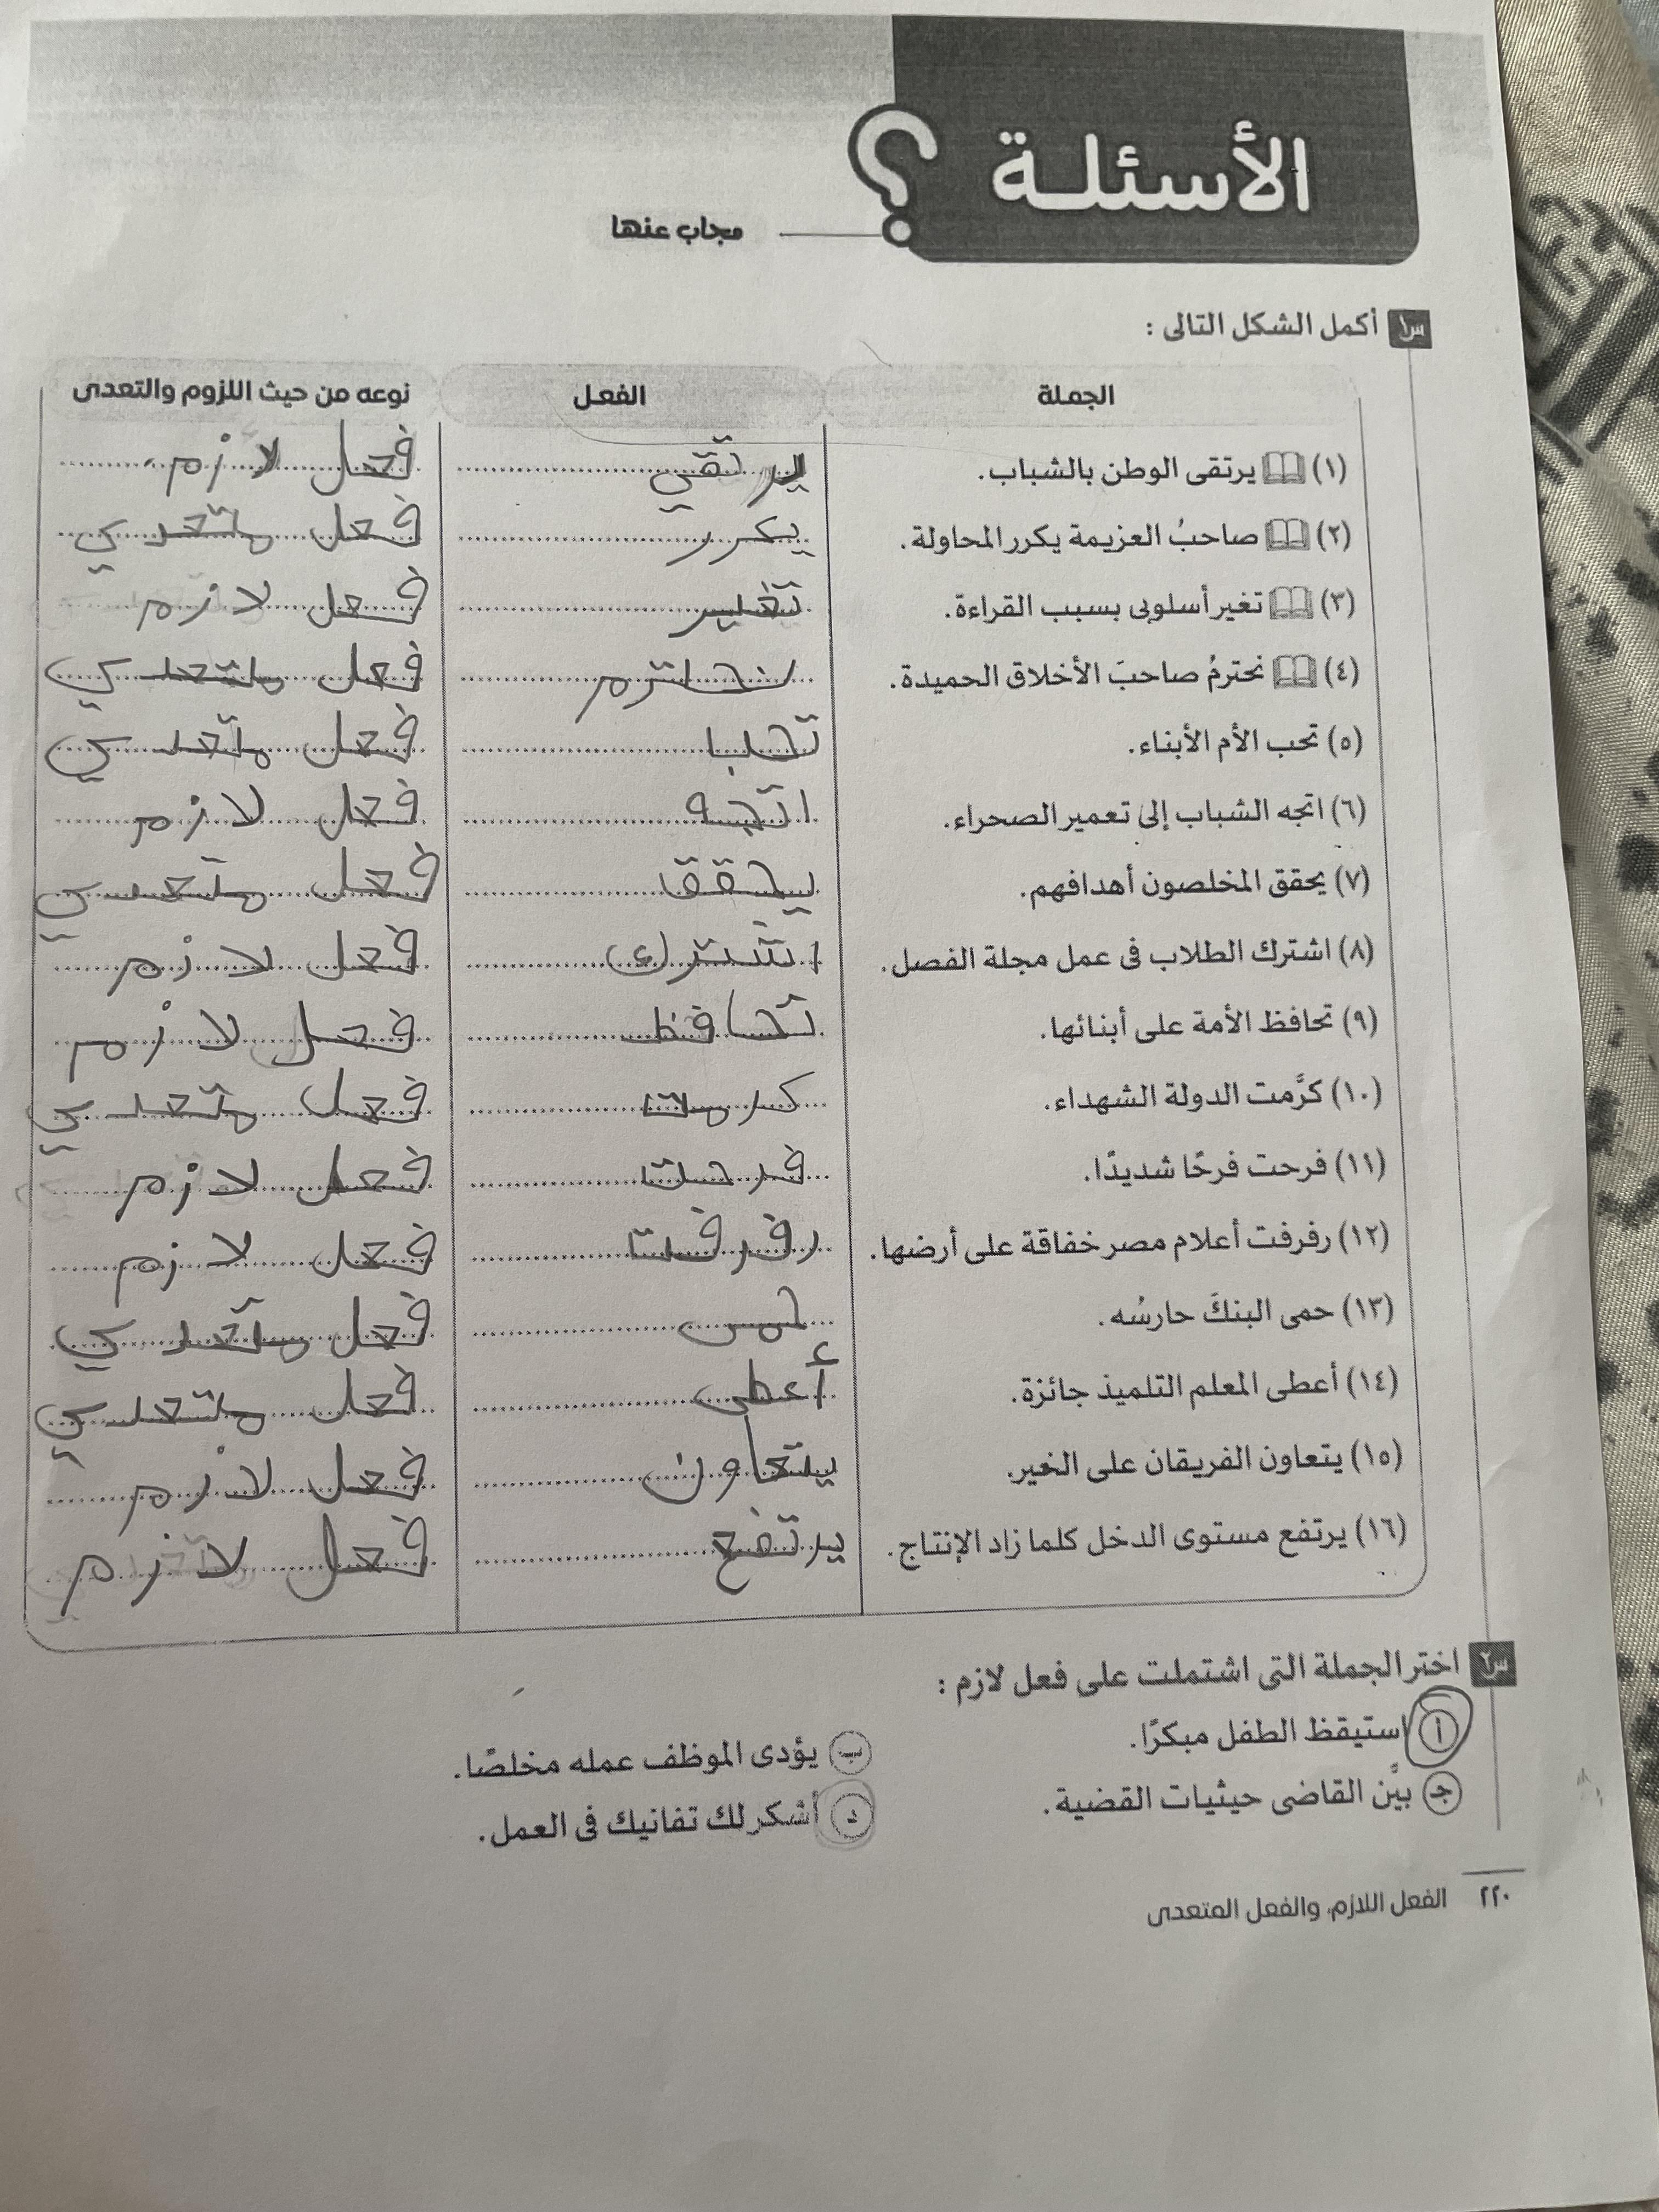 الأسئلة ؟
مجاب عنها
س١ أكمل الشكل التالى :
الجملة الفعل نوعه من حيث اللزوم والتعدى
(١) يرتقى الوطن بالشباب. يرتقي فعل لازم
(٢) صاحبُ العزيمة يكرر المحاولة. يكرر فعل متعدي
(٣) تغير أسلوبى بسبب القراءة. تغير فعل لازم
(٤) نحترمُ صاحبَ الأخلاق الحميدة. نحترم فعل متعدي
(٥) تحب الأم الأبناء. تحب فعل متعدي
(٦) اتجه الشباب إلى تعمير الصحراء. اتجه فعل لازم
(٧) يحقق المخلصون أهدافهم. يحقق فعل متعدي
(٨) اشترك الطلاب فى عمل مجلة الفصل. اشترك فعل لازم
(٩) تحافظ الأمة على أبنائها. تحافظ فعل لازم
(١٠) كرَّمت الدولة الشهداء. كرمت فعل متعدي
(١١) فرحت فرحًا شديدًا. فرحت فعل لازم
(١٢) رفرفت أعلام مصر خفاقة على أرضها. رفرفت فعل لازم
(١٣) حمى البنكَ حارسُه. حمى فعل متعدي
(١٤) أعطى المعلم التلميذ جائزة. أعطى فعل متعدي
(١٥) يتعاون الفريقان على الخير. يتعاون فعل لازم
(١٦) يرتفع مستوى الدخل كلما زاد الإنتاج. يرتفع فعل لازم
س٢ اختر الجملة التى اشتملت على فعل لازم :
أ استيقظ الطفل مبكرًا. ب يؤدى الموظف عمله مخلصًا.
جـ بيَّن القاضى حيثيات القضية. د أشكر لك تفانيك فى العمل.
٢٢٠ الفعل اللازم، والفعل المتعدى